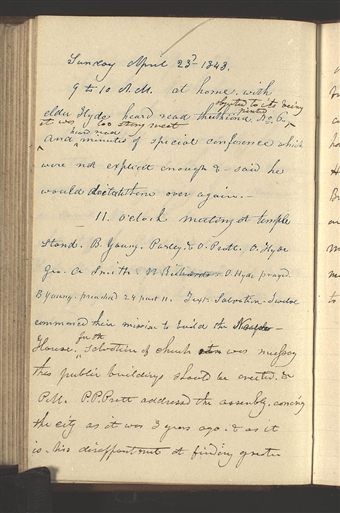 Sunday April 23d 1843.
9 to 10 A.M. at home. with
objected to its being
printed
elder Hyde heard read No 6.
it was too strong meat
heard read
And minutes of special conference which
were not explicit enough & said he
would dictate them over again.-
- 11. o'clock meeting at temple
Stand. B. Young. Parley, & O. Pratt. O. Hyde
Geo. A Smith. W Richards. O. Hyde prayd.
B Young. preached 24 past 11. Text. Salvation. Twelve
commenced their mission to build the
for the
House. Salvation of church was necessary
this public buildings should be erected. &
P.P. Pratt addressed the assembly. concing
the city as it was 3 years ago. & as it
is. his disappointment at finding greater